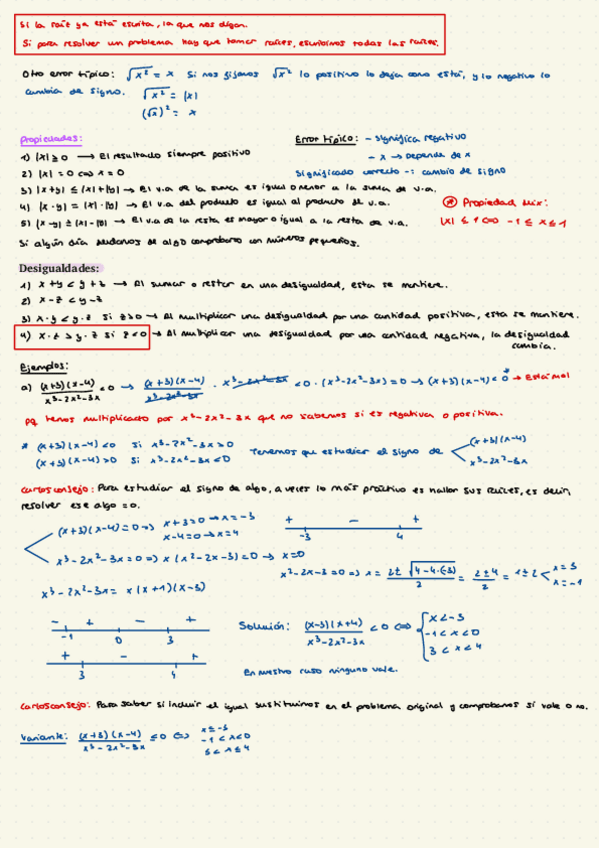 Si la raíz ya está escrita, la que nos digan.
Si para resolver un problema hay que tomar raíces, escribimos todas las raíces.
Otro error típico: √x² = x Si nos fijamos √x² lo positivo lo deja como está, y lo negativo lo
cambia de signo. √x² = |x|
(√x)² = x
Propiedades:
Error típico: - significa negativo
1) |x| ≥ 0 → El resultado siempre positivo
- x → Depende de x
2) |x| = 0 ⇔ x = 0
Significado correcto -: cambio de signo
3) |x+y| ≤ |x|+|y| → El v.a de la suma es igual o menor a la suma de v.a.
4) |x·y| = |x|·|y| → El v.a del producto es igual al producto de v.a.
* Propiedad Mix:
5) |x-y| ≥ |x|-|y| → El v.a de la resta es mayor o igual a la resta de v.a.
|x| ≤ 1 ⇔ -1 ≤ x ≤ 1
Si algún día dudamos de algo comprobarlo con números pequeños.
Desigualdades:
1) x+y < y+z → Al sumar o restar en una desigualdad, esta se mantiene.
2) x-z < y-z
3) x·y < y·z si z>0 → Al multiplicar una desigualdad por una cantidad positiva, esta se mantiene.
4) x·z > y·z si z<0 → Al multiplicar una desigualdad por una cantidad negativa, la desigualdad
cambia.
Ejemplos:
a) (x+3)(x-4)/x³-2x²-3x < 0 → (x+3)(x-4)/x³-2x²-3x · x³-2x²-3x < 0·(x³-2x²-3x) = 0 → (x+3)(x-4) < 0 * → Está mal
pq hemos multiplicado por x³-2x²-3x que no sabemos si es negativa o positiva.
* (x+3)(x-4)<0 si x³-2x²-3x>0 Tenemos que estudiar el signo de (x+3)(x-4)
(x+3)(x-4)>0 si x³-2x²-3x<0 x³-2x²-3x
Carlosconsejo: Para estudiar el signo de algo, a veces lo más práctico es hallar sus raíces, es decir,
resolver ese algo = 0.
(x+3)(x-4)=0 ⇒ x+3=0 → x=-3
x-4=0 → x=4
+ - +
-3 4
x³-2x²-3x=0 ⇒ x(x²-2x-3)=0 → x=0
x²-2x-3=0 ⇒ x = 2±√4-4·(-3)/2 = 2±4/2 = 1±2 x=3
x=-1
x³-2x²-3x = x(x+1)(x-3)
- + - +
-1 0 3
+ - +
3 4
Solución: (x-3)(x+4)/x³-2x²-3x < 0 ⇔ { x<-3
-1<x<0
3<x<4
En nuestro caso ninguno vale.
Carlosconsejo: Para saber si incluir el igual sustituimos en el problema original y comprobamos si vale o no.
Variante: (x+3)(x-4)/x³-2x²-3x ≤ 0 ⇔ x≤-3
-1<x<0
3<x≤4